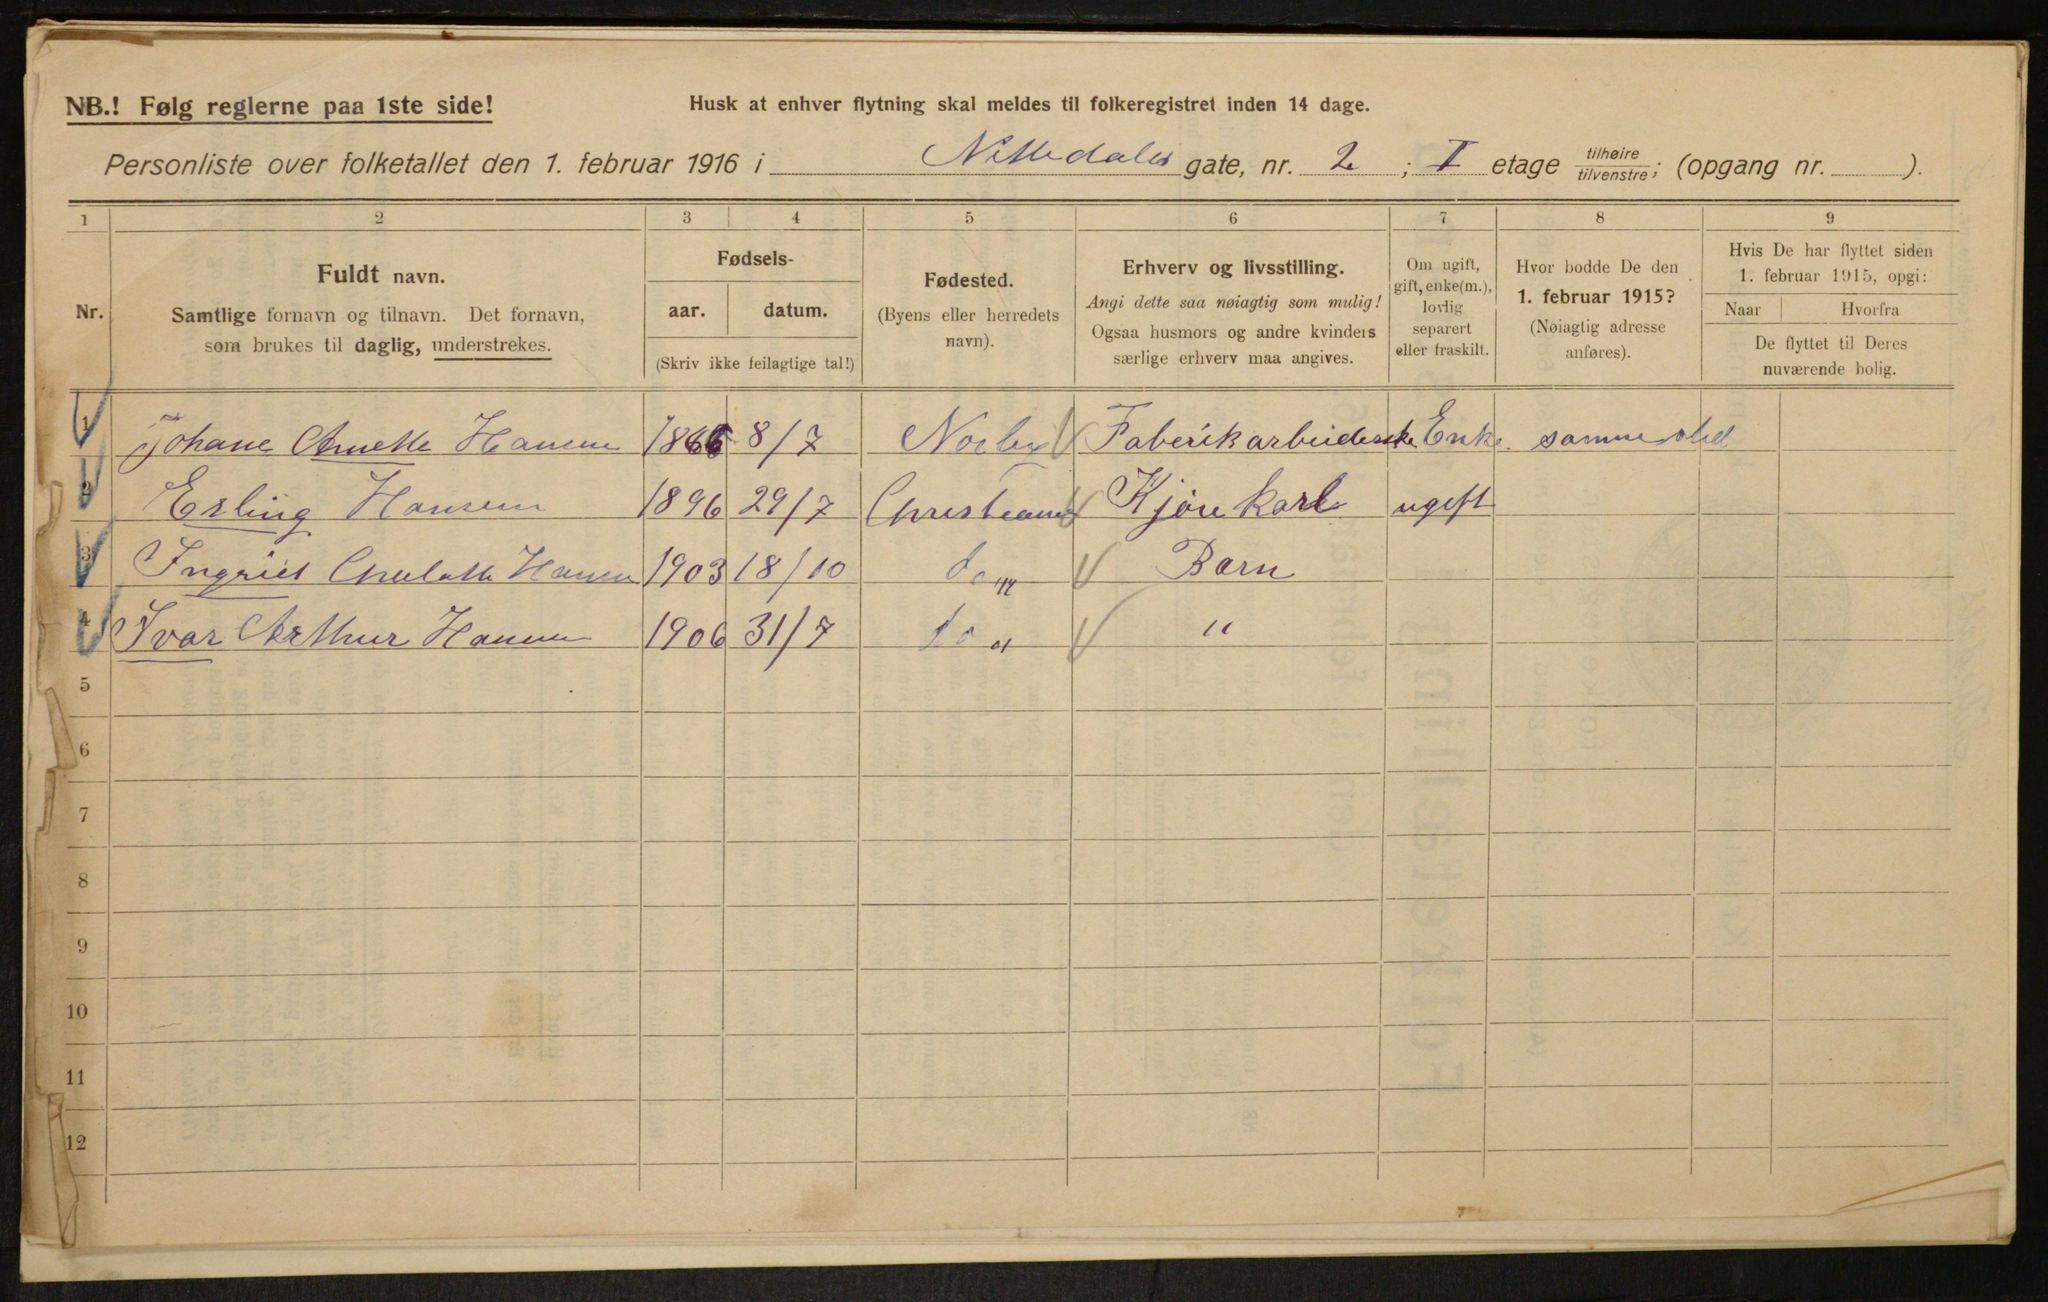 NB.! Følg reglerne paa 1ste side!
Husk at enhver flytning skal meldes til folkeregistret inden 14 dage.
Personliste over folketallet den 1. februar 1916 i Nittedals gate, nr. 2 ; I etage tilhøire tilvenstre; (opgang nr. ).
1 2 3 4 5 6 7 8 9
Nr.
Fuldt navn.
Samtlige fornavn og tilnavn. Det fornavn,
som brukes til daglig, understrekes.
Fødsels-
aar. datum.
(Skriv ikke feilagtige tal!)
Fødested.
(Byens eller herredets
navn).
Erhverv og livsstilling.
Angi dette saa nøiagtig som mulig!
Ogsaa husmors og andre kvinders
særlige erhverv maa angives.
Om ugift,
gift, enke(m.),
lovlig
separert
eller fraskilt.
Hvor bodde De den
1. februar 1915?
(Nøiagtig adresse
anføres).
Hvis De har flyttet siden
1. februar 1915, opgi:
Naar Hvorfra
De flyttet til Deres
nuværende bolig.
1 Johane Anette Hansen 1866 8/7 Faberikarbeiderske Enke samme sted
2 Erling Hansen 1896 29/7 Christiania Kjørekarl ugift
3 Ingrid Hansen 1903 18/10 do " Barn
4 Ivar Arthur Hansen 1906 31/7 do " "
5
6
7
8
9
10
11
12